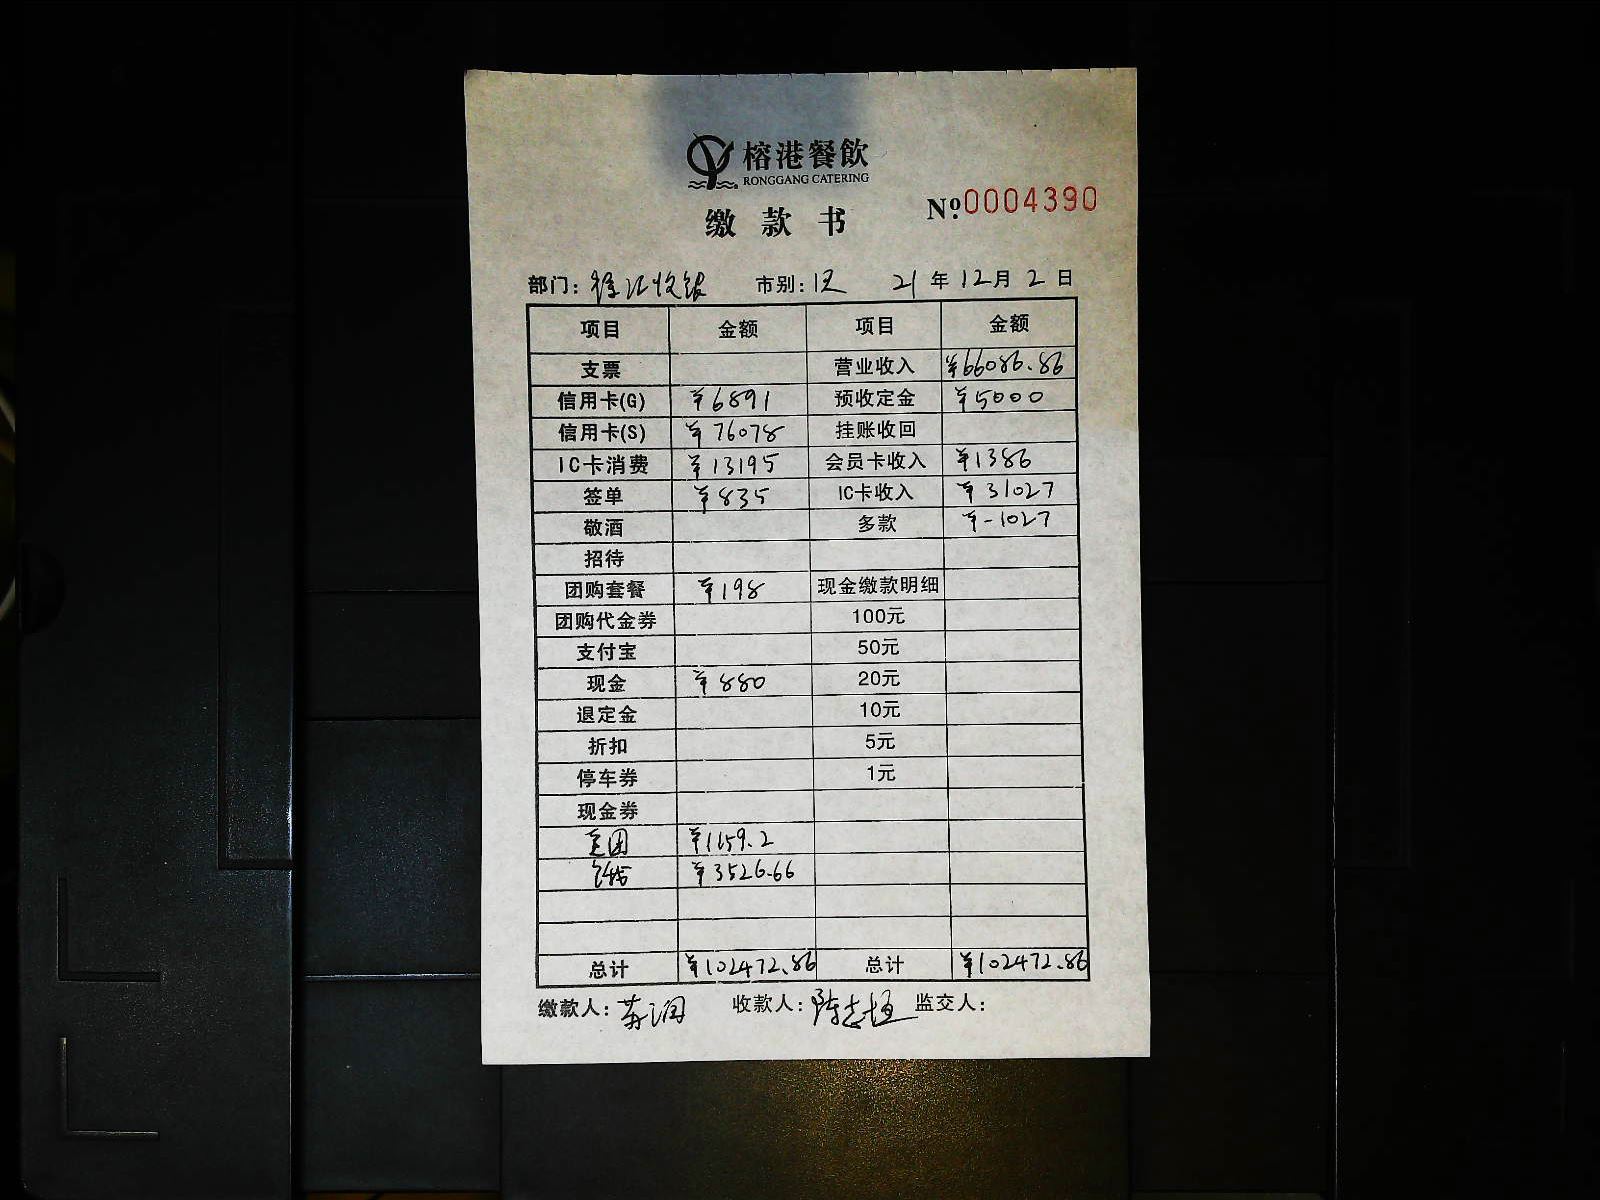 榕港餐飲
RONGGANG CATERING
缴款书
Nº.0004390
部门: 徐汇收银 市别: 21年12月2日
项目 金额 项目 金额
支票 营业收入 ¥66086.86
信用卡(G) ¥6891 预收定金 ¥5000
信用卡(S) ¥76078 挂账收回
IC卡消费 ¥13195 会员卡收入 ¥1386
签单 ¥835 IC卡收入 ¥31027
敬酒 多款 ¥-1027
招待
团购套餐 ¥198 现金缴款明细
团购代金券 100元
支付宝 50元
现金 ¥880 20元
退定金 10元
折扣 5元
停车券 1元
现金券
美团 ¥1159.2
¥3526.66
总计 ¥102472.86 总计 ¥102472.86
缴款人: 收款人: 陈志恒 监交人: